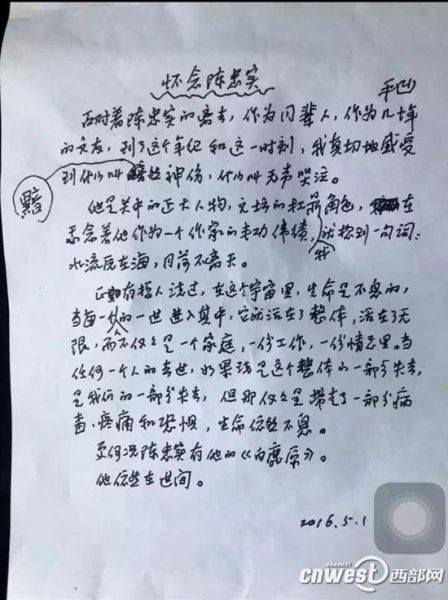 怀念陈忠实
平凹
面对着陈忠实的离去，作为同辈人，作为几十年
的文友，到了这个年纪和这一时刻，我真切地感受
到什么叫黯然神伤，什么叫无声哭泣。
黯
他是关中的正大人物，文坛的扛鼎角色，在
悉念着他作为一个作家的丰功伟绩，就想到一句词：
我
水流原在海，月落不离天。
正如有哲人说过，在这个宇宙里，生命是不息的，
当每一人的一世进入其中，它就活在了整体，活在了无
限，而不仅仅是一个家庭，一份工作，一份情志里。当
任何一个人的去世，如果说是这个整体的一部分失去，
是我们的一部分失去，但那仅仅是带走了一部分病
毒、疼痛和恐惧，生命依然不息。
更何况陈忠实有他的《白鹿原》。
他依然在世间。
2016.5.1
channel
cnwest西部网